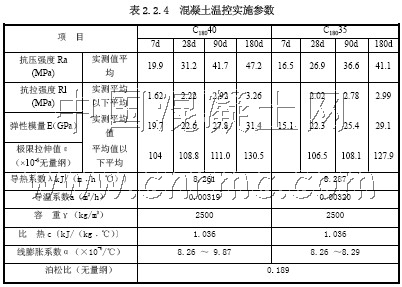 表2.2.4 混凝土温控实施参数
项 目 C18040 C18035
7d 28d 90d 180d 7d 28d 90d 180d
抗压强度 Ra (MPa) 实测值平均 19.9 31.2 41.7 47.2 16.5 26.9 36.6 41.1
抗拉强度 Rl (MPa) 实测平均以下平均 1.62 2.22 2.92 3.26 2.02 2.78 2.99
弹性模量E(GPa) 实测平均值 19.7 22.6 27.8 31.4 15.1 22.3 25.4 29.1
极限拉伸值ε (×10⁻⁶无量纲) 平均值以下平均 104 108.8 111.0 130.5 106.5 108.1 127.9
导热系数λkJ/(m.h ℃)] 8.261 8.287
导温系数a(m²/h) 0.00319 0.00320
容 重γ(kg/m³) 2500 2500
比 热c〔kJ/(kg.℃)〕 1.036 1.036
线膨胀系数α(×10⁻⁶/℃) 8.26 ～ 9.87 8.26 ～8.29
泊松比(无量纲) 0.189
中国混凝土网
www.cnrmc.com